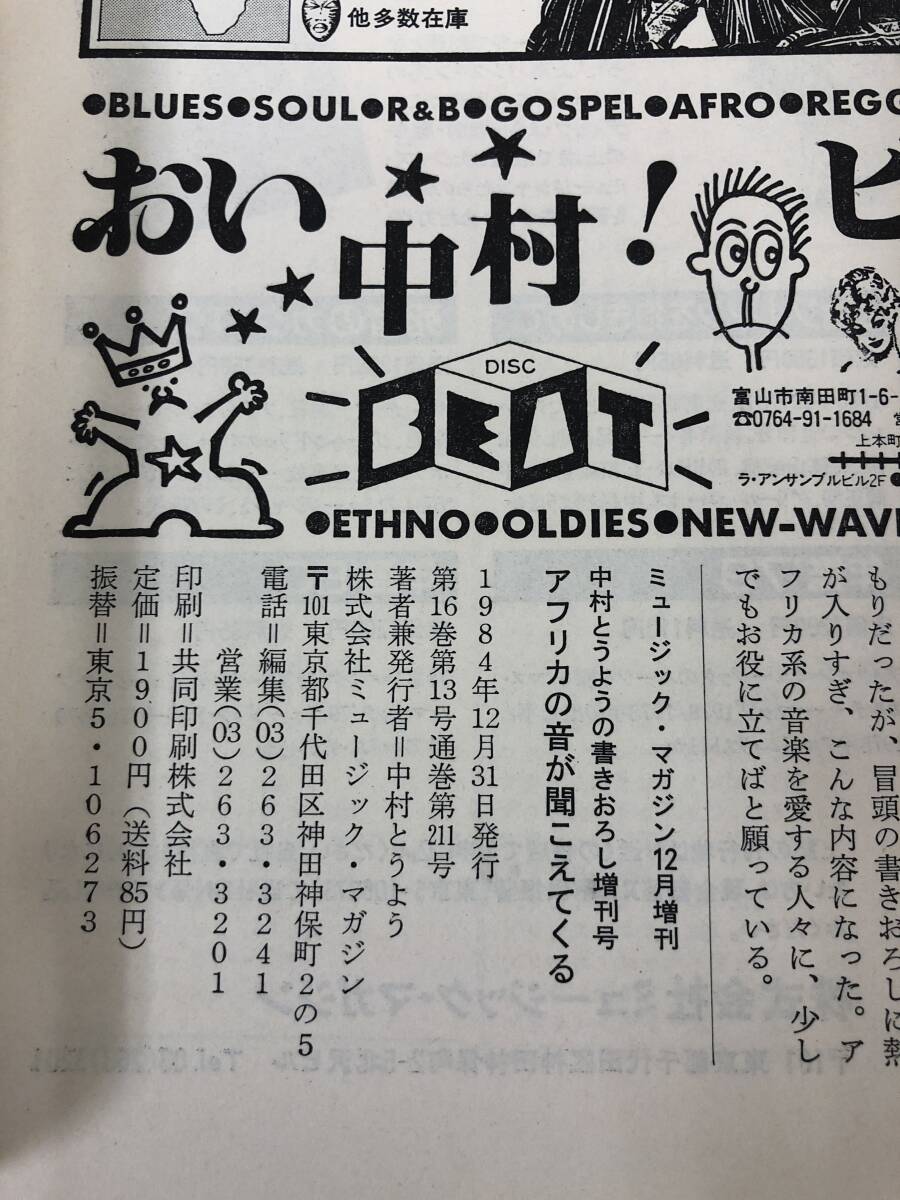 他多数在庫
●BLUES●SOUL●R&B●GOSPEL●AFRO●REGG
おい中村！ビ
DISC
BEAT
富山市南田町1-6-
☎0764-91-1684
上本町
ラ・アンサンブルビル2F
●ETHNO●OLDIES●NEW-WAVE
もりだったが、冒頭の書きおろしに熱
が入りすぎ、こんな内容になった。ア
フリカ系の音楽を愛する人々に、少し
でもお役に立てばと願っている。
ミュージック・マガジン12月増刊
中村とうようの書きおろし増刊号
アフリカの音が聞こえてくる
1984年12月31日発行
第16巻第13号通巻第211号
著者兼発行者＝中村とうよう
株式会社ミュージック・マガジン
〒101東京都千代田区神田神保町2の5
電話＝編集(03)263・3241
営業(03)263・3201
印刷＝共同印刷株式会社
定価＝1900円（送料85円）
振替＝東京5・106273